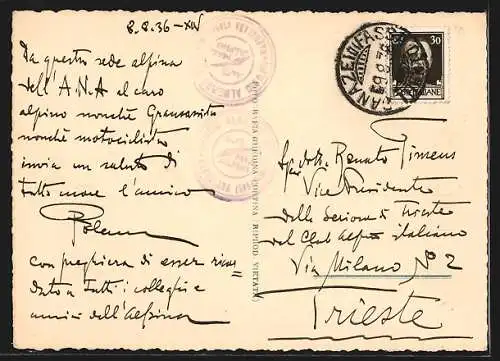 8.8.36-XIV
Da questa sede alpina
dell'A.N.A al caro
alpino nonchè
nonchè motociclista
invia un saluto di
tutto cuore l'amico
con preghiera di esser ricor=
dato a tutti i colleghi e
amici dell'Alpina
30
POSTE ITALIANE
Dott. Renato Timeus
Vice Presidente
della Sezione di Trieste
del Club Alpino italiano
Via Milano N° 2
Trieste